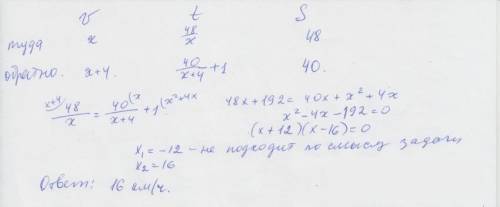 v t S
туда x 48/x 48
обратно. x+4. 40/(x+4) + 1 40.
x+4) 48/x = 40(x/(x+4) + 1(x²+4x
48x+192 = 40x+x²+4x
x²-4x-192=0
(x+12)(x-16)=0
x₁ = -12 - не подходит по смыслу задачи
x₂ = 16
Ответ: 16 км/ч.